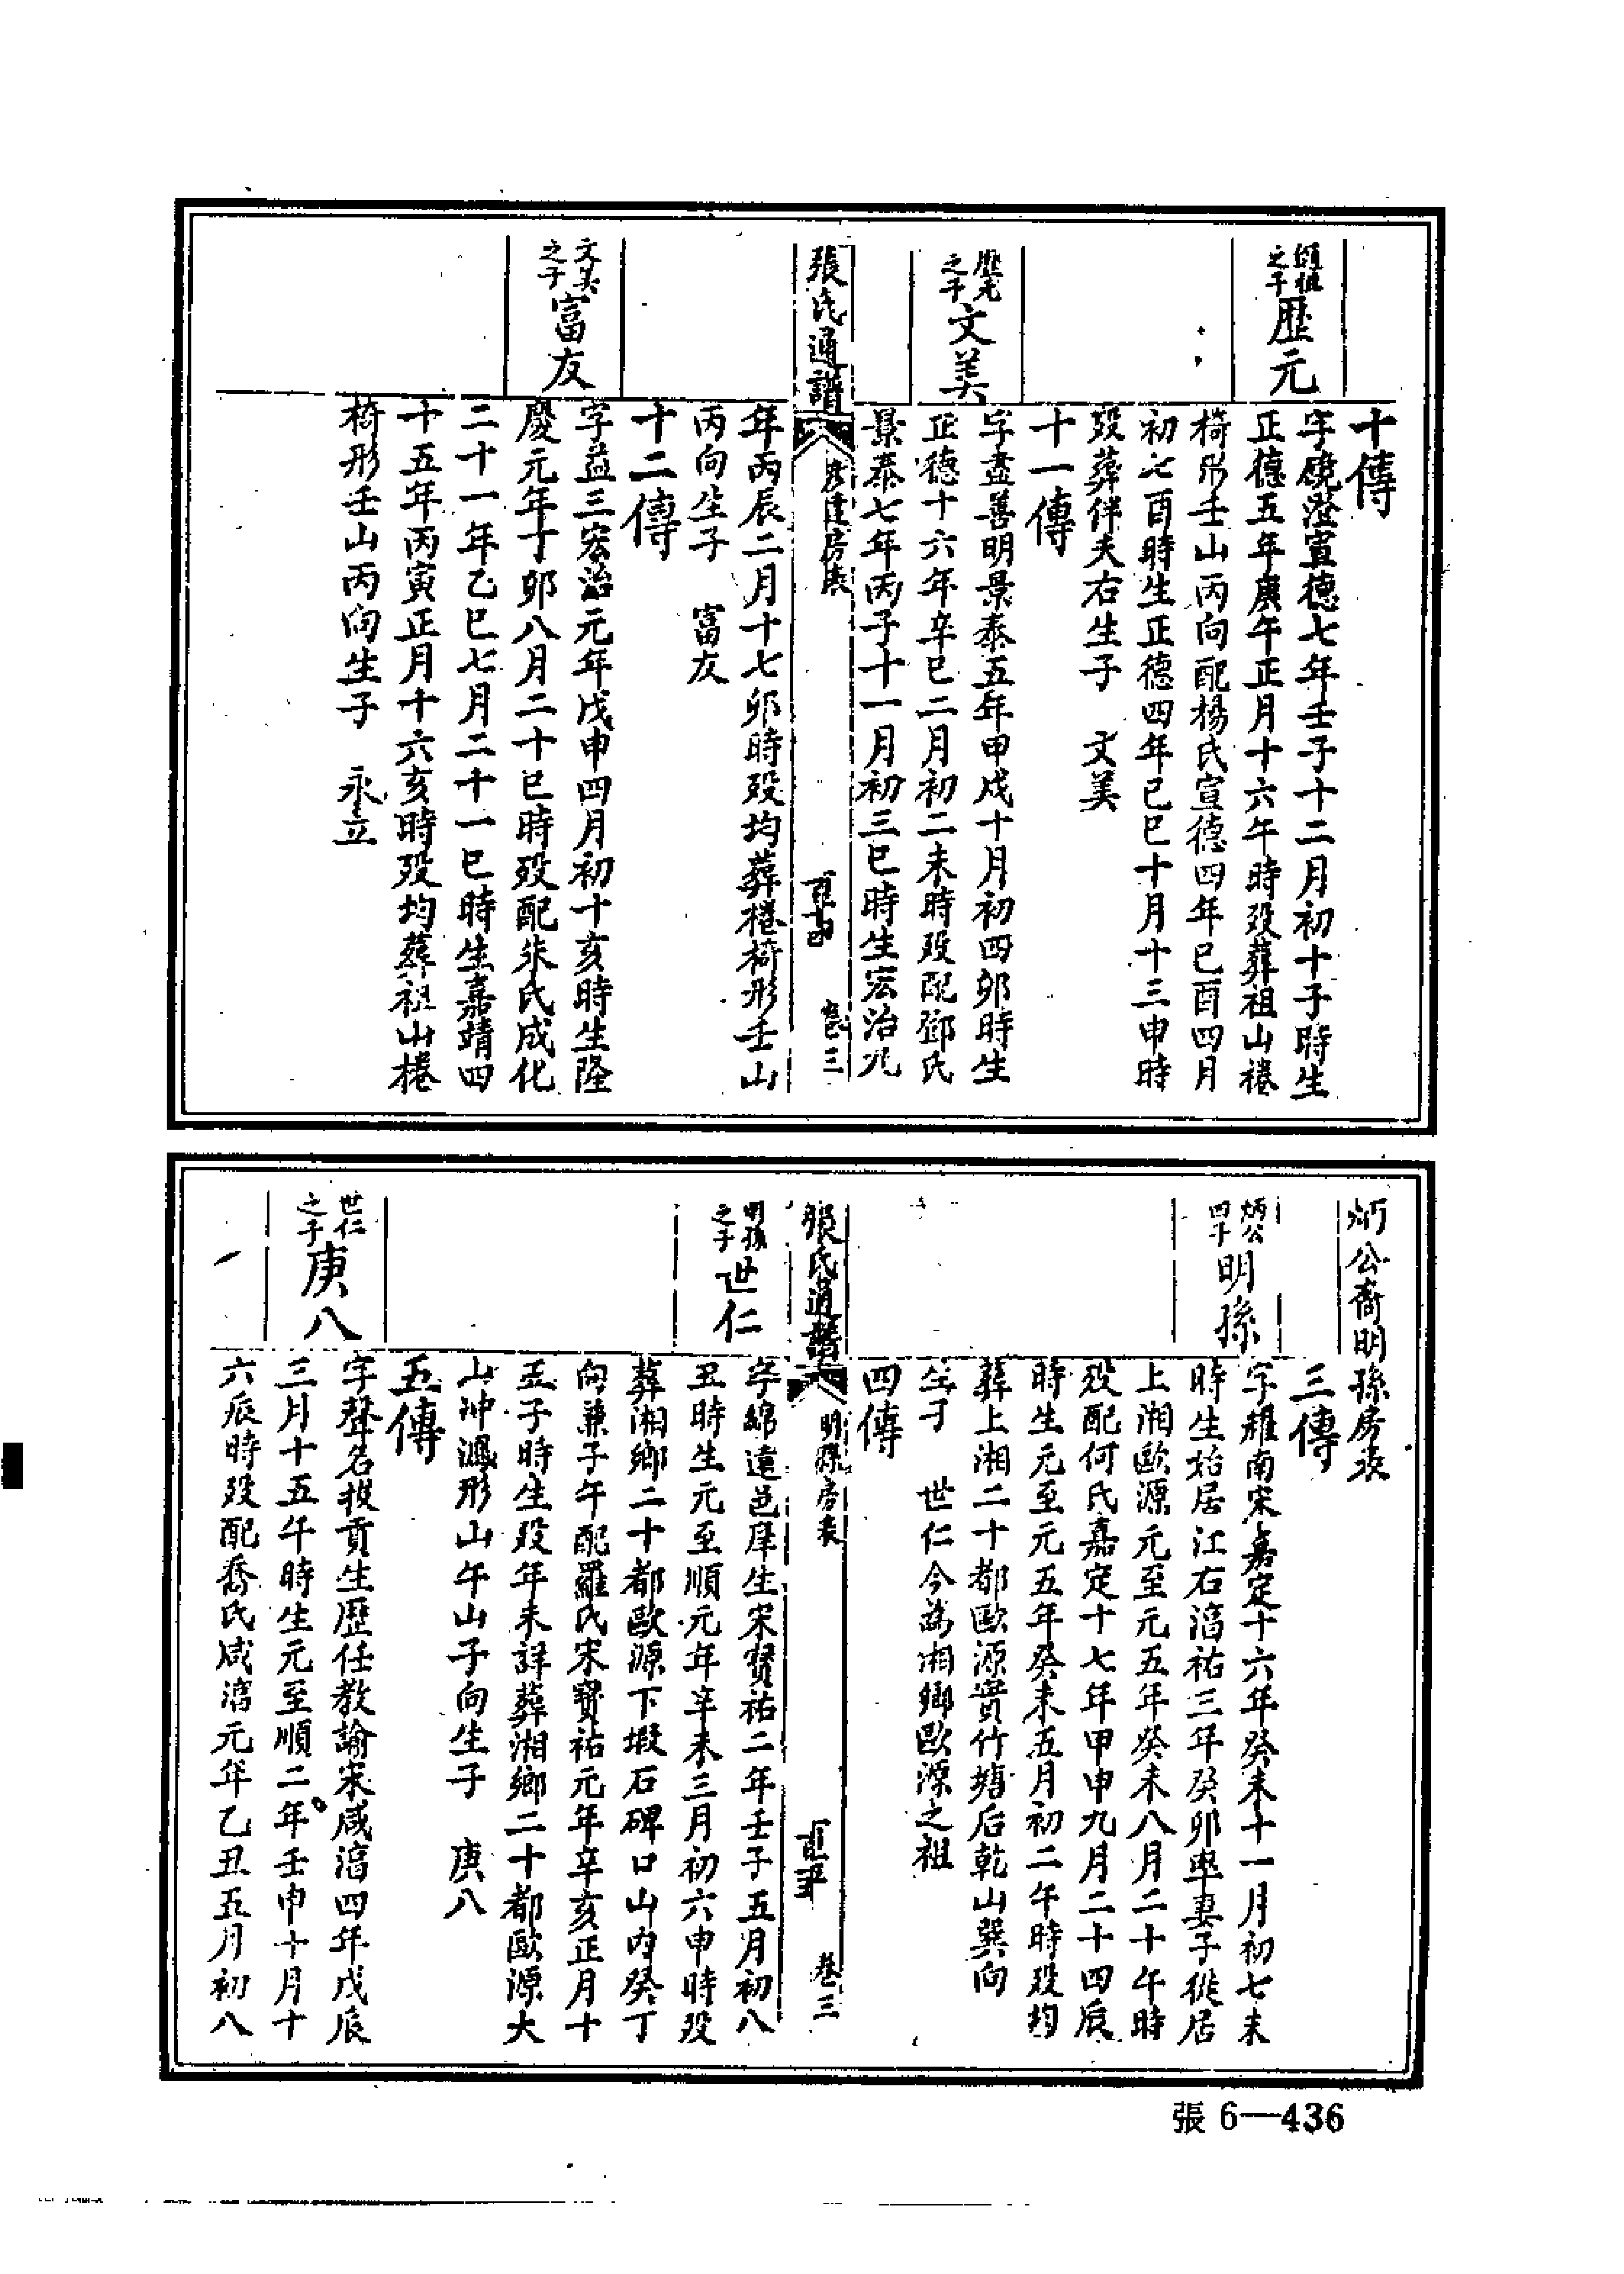 十傳
頤祖之子
歷元
字皢澄宣德七年壬子十二月初十子時生
正德五年庚午正月十六午時歿葬祖山棬
椅形壬山丙向配楊氏宣德四年已酉四月
初七酉時生正德四年己巳十月十三申時
歿葬伴夫右生子 文美
十一傳
歷元之子
文美
字盡善明景泰五年甲戌十月初四卯時生
正德十六年辛巳二月初二未時歿配鄧氏
景泰七年丙子十一月初三巳時生宏治九
張氏通譜
房表
卷三
年丙辰二月十七卯時歿均葬棬椅形壬山
丙向生子 富友
十二傳
文美之子
富友
字益三宏治元年戊申四月初十亥時生隆
慶元年丁卯八月二十巳時歿配朱氏成化
二十一年乙巳七月二十一巳時生嘉靖四
十五年丙寅正月十六亥時歿均葬祖山棬
椅形壬山丙向生子 永立
炳公裔明孫房表
三傳
炳公四子
明孫
字耀南宋嘉定十六年癸未十一月初七未
時生始居江右湻祐三年癸卯率妻子徙居
上湘歐源元至元五年癸未八月二十午時
歿配何氏嘉定十七年甲申九月二十四辰
時生元至元五年癸未五月初二午時歿均
葬上湘二十都歐源實竹塘后乾山巽向
生子 世仁今為湘鄉歐源之祖
四傳
張氏通譜
明孫房表
卷三
明孫之子
世仁
字綿遠邑庠生宋寳祐二年壬子五月初八
丑時生元至順元年辛未三月初六申時歿
葬湘鄉二十都歐源下塅石碑口山內癸丁
向兼子午配羅氏宋寳祐元年辛亥正月十
五子時生歿年未詳葬湘鄉二十都歐源大
山冲形山午山子向生子 庚八
五傳
世仁之子
庚八
字聲名拔貢生歷任教諭宋咸湻四年戊辰
三月十五午時生元至順二年壬申十月十
六辰時歿配喬氏咸湻元年乙丑五月初八
張 6—436